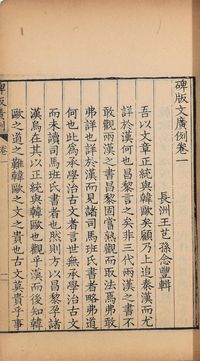 碑版文廣例卷一
長洲王芑孫念豐輯
吾以文章正統與韓歐矣顧乃上追秦漢而尤
詳於漢何也昌黎言之矣非三代兩漢之書不
敢觀兩漢之書昌黎固嘗熟觀而取法焉弗敢
弗詳也詳於漢而見諸司馬班氏書者略弗道
何也此為承學治古文者言世無承學治古文
而未讀司馬班氏書者也然則方以昌黎準諸
漢烏在其以正統與韓歐也觀乎漢而後知韓
歐之道之難韓歐之文之貴也古文莫貴乎事
碑版廣例
卷一
一